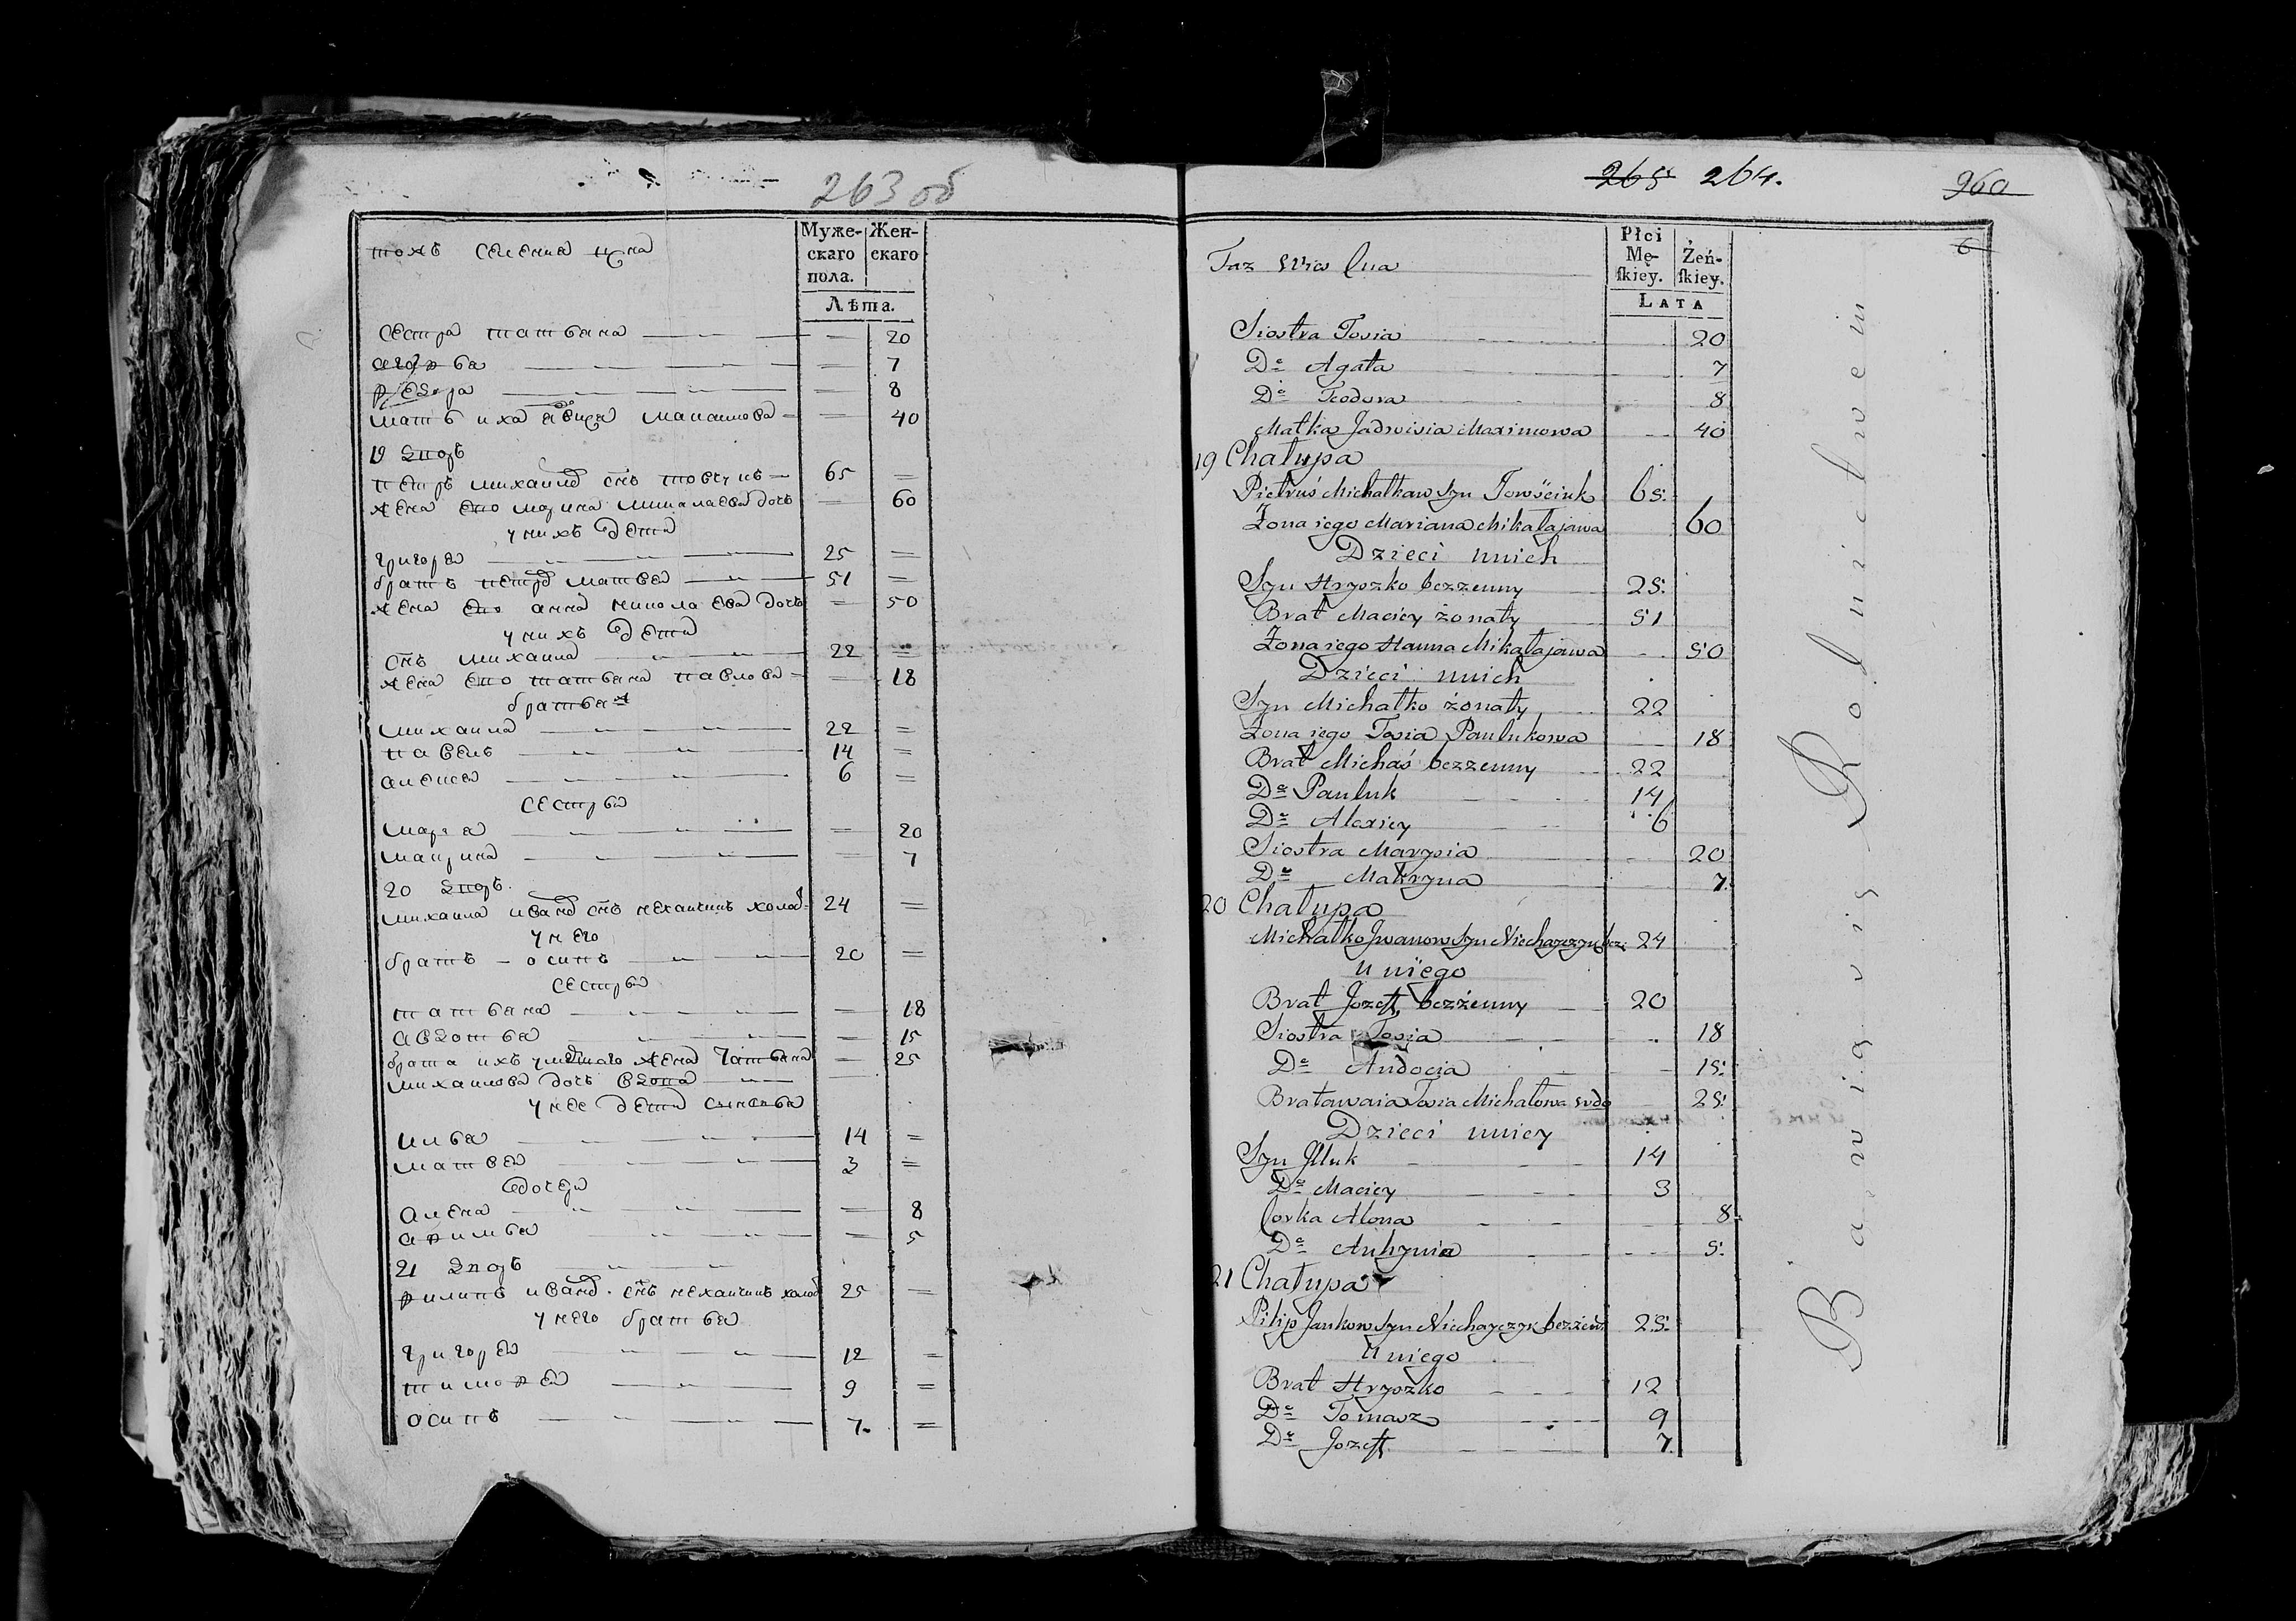 263 об
Муже-
скаго
пола.
Жен-
скаго
Лѣта.
сестра татьяна 20
агафья 7
федора 8
40
19 двор
65
жена его марина миколаева дочь 60
у нихъ дети
григорей 25
братъ петра матвей 51
жена его анна миколаева дочь 50
у нихъ дети
снъ михаила 22
жена его татьяна павлова 18
братья
михаила 22
павелъ 14
алексей 6
сестры
марья 20
макрина 7
20 двор
михаила иванов снъ нехайчикъ холос 24
у него
братъ осипъ 20
сестры
татьяна 18
авдотья 15
брата ихъ умершаго жена татьяна 25
михайлова дочь вдова
у нее дети сыновья
илья 14
матвей 3
дочери
алена 8
афимья 5
21 двор
филипъ иванов снъ нехайчикъ холос 25
у него братья
григорей 12
тимофей 9
осипъ 7
265 264.
960
6
Taż Wieś
Płci
Mę-
skiey.
Żeń-
skiey.
LATA
Siostra Tosia 20
Do Agata 7
Do Teodora 8
Matka Jadwisia Maximowa 40
19 Chałupa
Pietruś Michałkaw Syn 65
Żona iego Mariana Mikałajawa 60
Dzieci u nich
Syn Hryszko bezżenny 25
Brat Maciey żonaty 51
Żona iego Hanna Mikałajawa 50
Dzieci u nich
Syn Michałko żonaty 22
Żona iego Tosia Paulukowa 18
Brat Michaś bezżenny 22
Do Pauluk 14
Do Alexiey 6
Siostra Marysia 20
Do Makryna 7
20 Chałupa
Michałko Jwanow Syn Niechayczyk bez: 24
u niego
Brat Jozeff bezżenny 20
Siostra Tosia 18
Do Audocia 15
Bratawaia Tosia Michałowa wdo 25
Dzieci u niey
Syn Jlluk 14
Do Maciey 3
Corka Alona 8
Do Auhynia 5
21 Chałupa
Pilip Jankow Syn Niechayczyk bezżen: 25
U niego
Brat Hryszko 12
Do Tomasz 9
Do Jozeff 7
Bawią się Rolnictwem